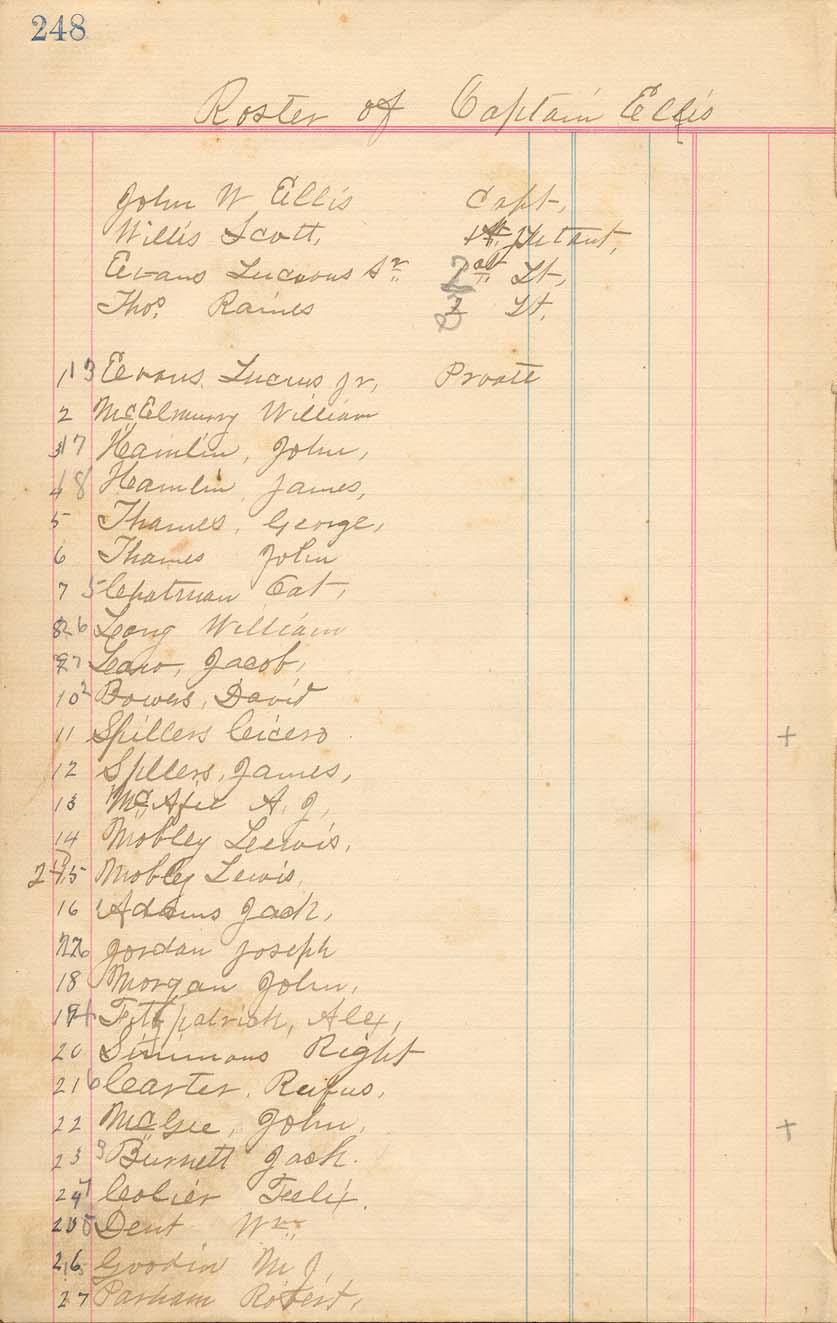 248
Roster of Captain Ellis
John W Ellis Capt,
Willis Scott, 1st
Evans Sr. Lt,
Thos. Raines 2 Lt,
1 13 Evans Lucius Jr,
2 McElmurry William
3 17 Hamlin, John,
4 18 Hamlin James,
5 Thames, George,
6 Thames John
7 5 Chatman Cat,
8 26 Long William
9 27 Jacob,
10 2 Bowers, David
11 Spillers Cicero +
12 Spllers, James,
13 McAfee A. J,
14 Mobley Leewis,
15 Mobley Lewis,
16 Adams Jack,
Jordan Joseph
18 Morgan John,
19 Fitzpatrick, Alex,
20 Simmons Right
21 6 Carter, Rufus,
22 McGee, John, +
23 9 Burnett Jack.
24 7 Colier Feelix.
8 Dent Wm
26 Goodin M J
27 Parham Robert,